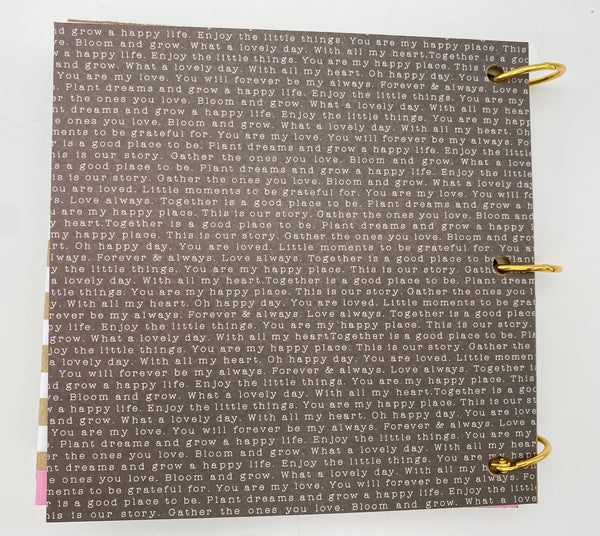 and grow a happy life. Enjoy the little things. You are my happy place. This
ve. Bloom and grow. What a lovely day. With all my heart.Together is a good
a happy life. Enjoy the little things. You are my happy place. This is our
and grow. What a lovely day. With all my heart. Oh happy day. You are love
You are my love. You will forever be my always. Forever & always. Love
. Plant dreams and grow a happy life. Enjoy the little things. You are my
er the ones you love. Bloom and grow. What a lovely day. With all my hear
nt dreams and grow a happy life. Enjoy the little things. You are my happy
e ones you love. Bloom and grow. What a lovely day. With all my heart. Oh
ments to be grateful for. You are my love. You will forever be my always. Fo
r is a good place to be. Plant dreams and grow a happy life. Enjoy the little
his is our story. Gather the ones you love. Bloom and grow. What a love
is a good place to be. Plant dreams and grow a happy life. Enjoy the little
is is our story. Gather the ones you love. Bloom and grow. What a lovely day
ou are loved. Little moments to be grateful for. You are my love. You will fo
s. Love always. Together is a good place to be. Plant dreams and grow a h
u are my happy place. This is our story. Gather the ones you love. Bloom and
y heart.Together is a good place to be. Plant dreams and grow a happy
my happy place. This is our story. Gather the ones you love. Bloom and grow
rt. Oh happy day. You are loved. Little moments to be grateful for. You ar
lways. Forever & always. Love always. Together is a good place to be. Plan
y the little things. You are my happy place. This is our story. Gather
a lovely day. With all my heart.Together is a good place to be. Plant dream
ttle things. You are my happy place. This is our story. Gather the ones you l
y. With all my heart. Oh happy day. You are loved. Little moments to be grat
rever be my always. Forever & always. Love always. Together is a good place
py life. Enjoy the little things. You are my happy place. This is our story.
grow. What a lovely day. With all my heartTogether is a good place to be. Pl
joy the little things. You are my happy place. This is our story. Gather the
a lovely day. With all my heart. Oh happy day. You are loved. Little momen
. You will forever be my always. Forever & always. Love always. Together
nd grow a happy life. Enjoy the little things. You are my happy place. This
ve. Bloom and grow. What a lovely day. With all my heart.Together is a good
w a happy life. Enjoy the little things. You are my happy place. This is our
and grow. What a lovely day. With all my heart. Oh happy day. You are love
. You are my love. You will forever be my always. Forever & always. Love
e. Plant dreams and grow a happy life. Enjoy the little things. You are my
er the ones you love. Bloom and grow. What a lovely day. With all my hear
nt dreams and grow a happy life. Enjoy the little things. You are my happy
e ones you love. Bloom and grow. What a lovely day. With all my heart. Oh
ments to be grateful for. You are my love. You will forever be my always. Fo
r is a good place to be. Plant dreams and grow a happy life. Enjoy the little
his is our story. Gather the ones you love. Bloom and grow. What a love